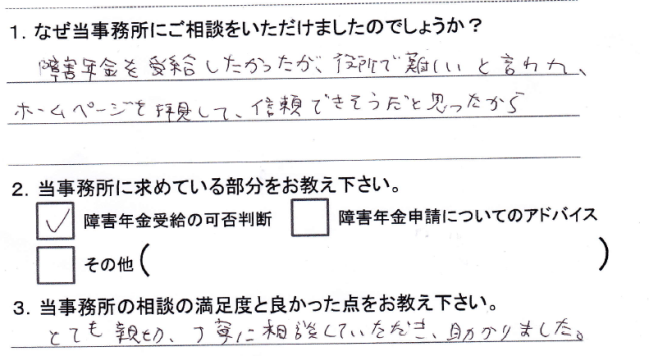 1. なぜ当事務所にご相談をいただけましたのでしょうか？
障害年金を受給したかったが、役所で難しいと言われ、
ホームページを拝見して、信頼できそうだと思ったから
2. 当事務所に求めている部分をお教え下さい。
✓ 障害年金受給の可否判断 障害年金申請についてのアドバイス
その他（ ）
3. 当事務所の相談の満足度と良かった点をお教え下さい。
とても親切、丁寧に相談していただき、助かりました。